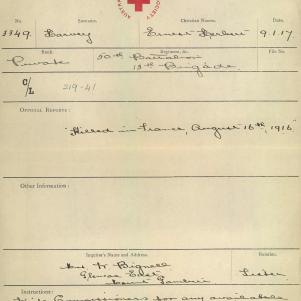 SOCIETY AUSTRA
No. Surname. Christian Names. Date.
3349. Harvey Ernest Herbert 9.1.17
Rank. Regiment, &c. File No.
Private 50th Battalion
13th Brigade
C/L 219-41
OFFICIAL REPORTS:
"Killed in France, August 16th, 1916"
Other Information:
Inquirer's Name and Address. Relation.
Mrs W Bignell Sister
Glencoe East
Mount Gambier
Instructions:
Commissioners for any available